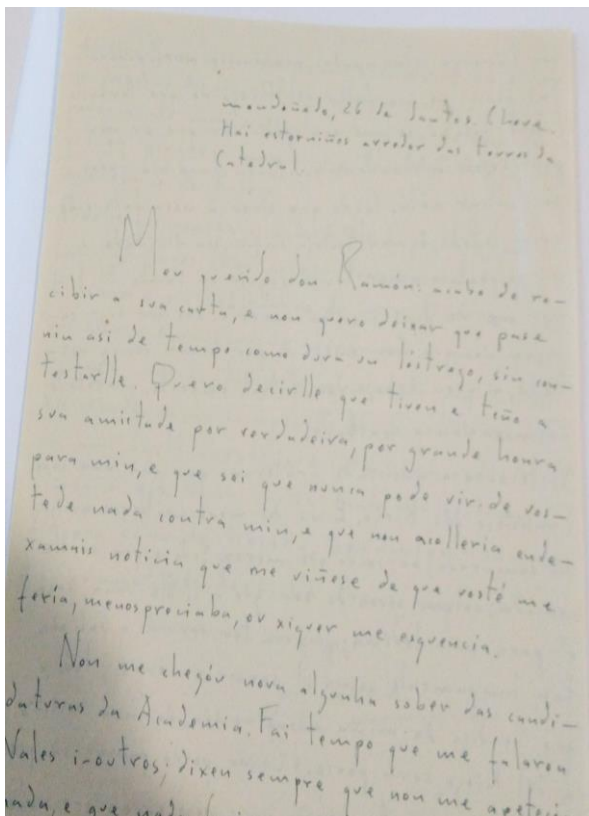 mondoñedo, 26 de Santos. Chove.
Hai estorniños arredor das torres da
Catedral.
Meu querido don Ramón: acabo de re-
cibir a sua carta, e non quero deixar que pase
nin asi de tempo como dura un lóstrego, sin con-
testarlle. Quero decirlle que tiven e teño a
sua amistade por verdadeira, por grande honra
para min, e que sei que nunca pode vir de vos-
tede nada contra min, e que non acolleria ende-
xamais noticia que me viñese de que vosté me
feria, menospreciaba, ou xiquer me esquencia.
Non me chegóu nova algunha sober das candi-
daturas da Academia. Fai tempo que me falaron
Vales i-outros; dixen sempre que non me apeteci-
nada, e que